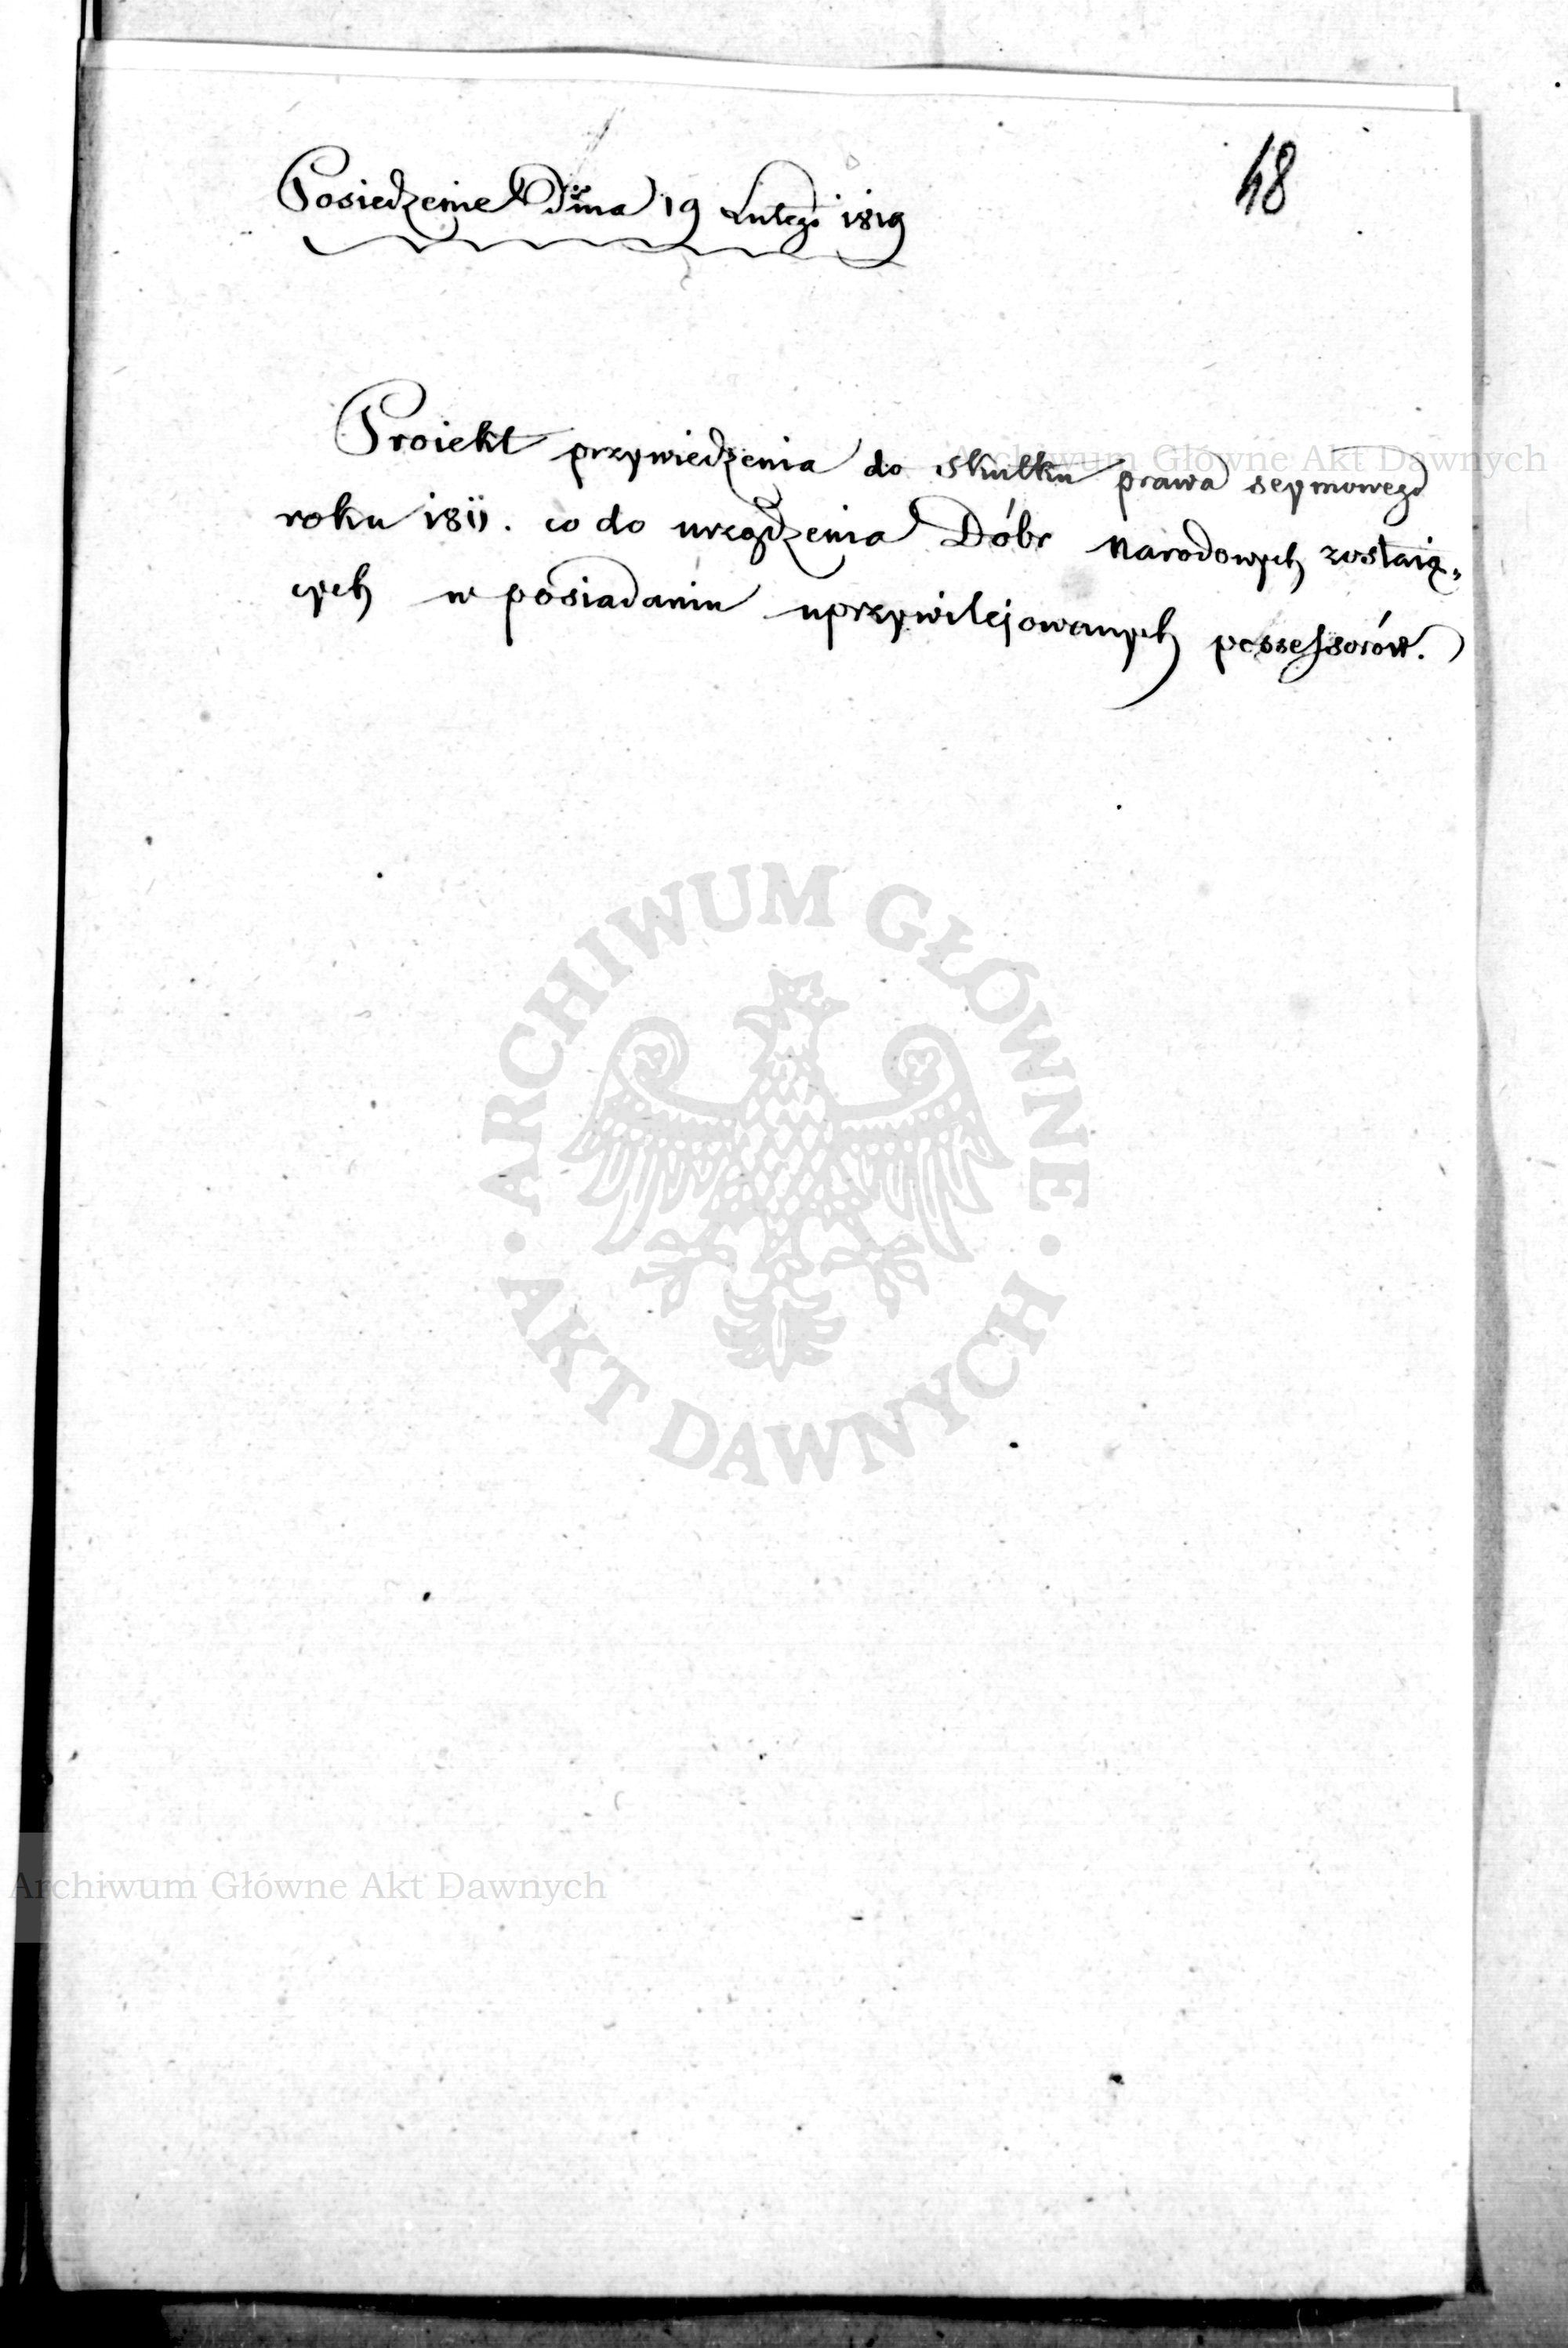 48
Posiedzenie Dnia 19 Lutego 1819
Proiekt przywiedzenia do skutku prawa seymowego
roku 1811. co do urządzenia Dóbr Narodowych zostaią„
cych w posiadaniu uprzywilejowanych possessorów.
Archiwum Główne Akt Dawnych
ARCHIWUM GŁÓWNE
AKT DAWNYCH
Archiwum Główne Akt Dawnych